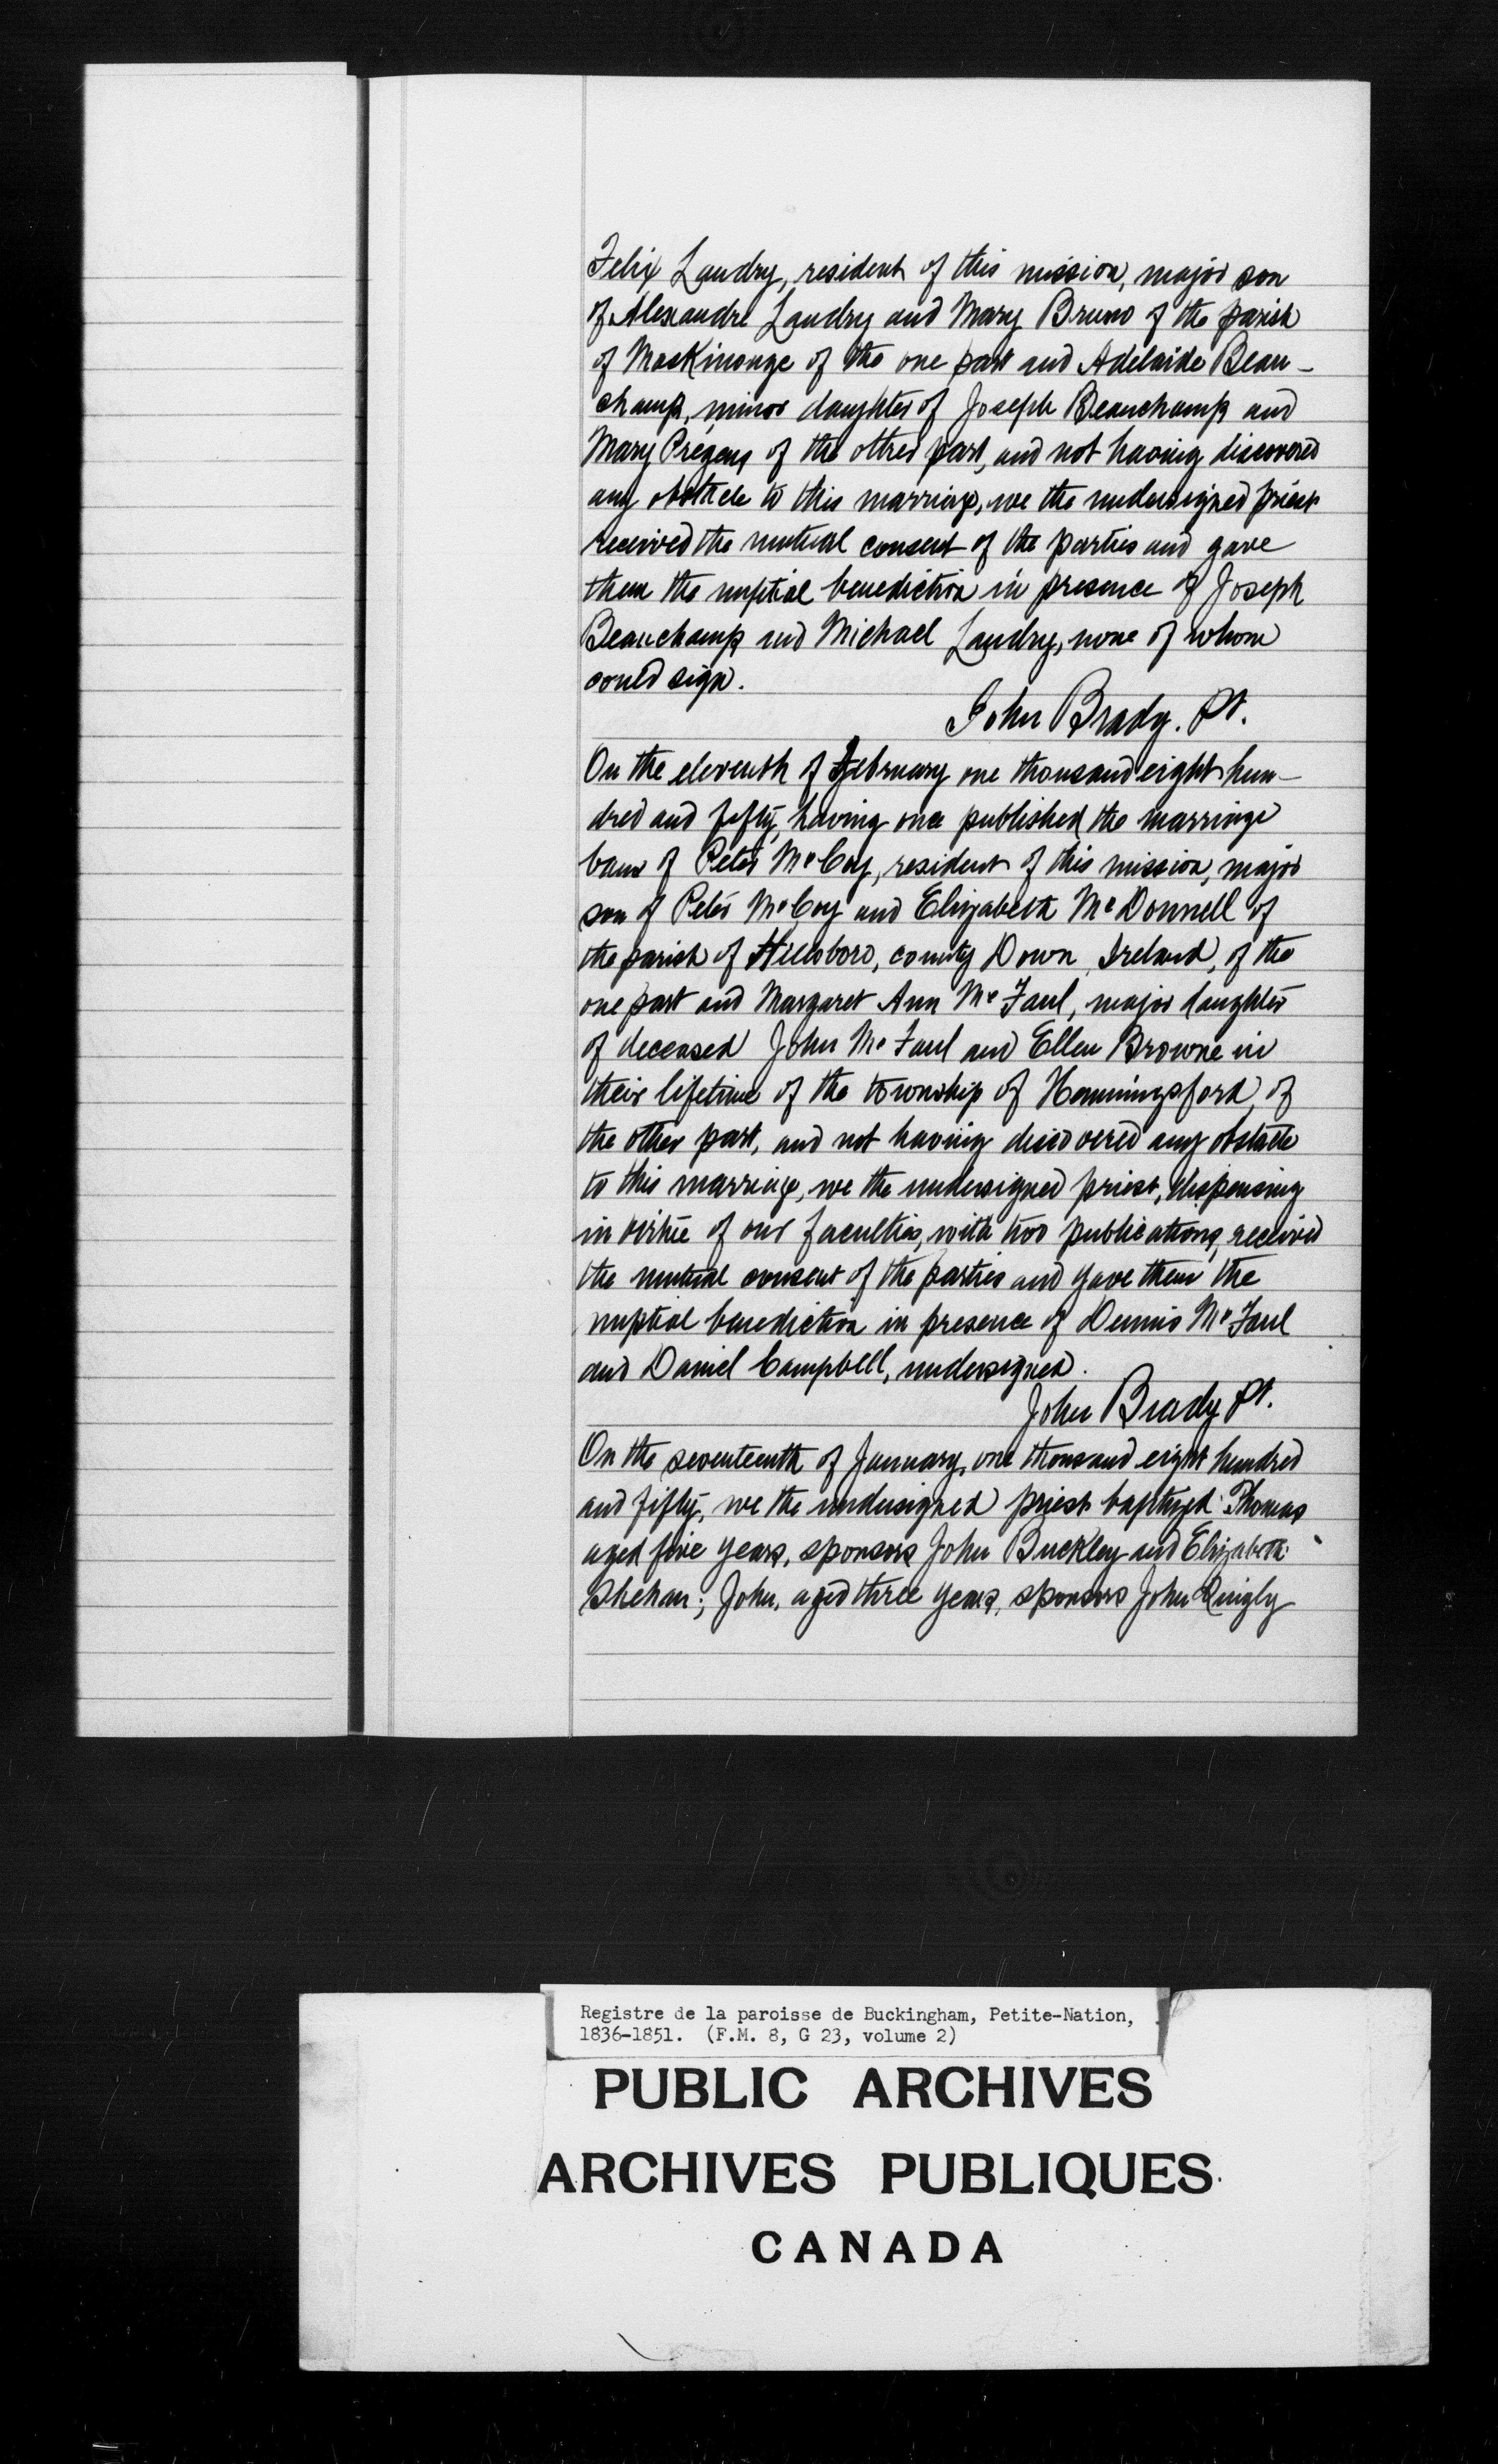 Felix Landry, resident of this mission, major son
of Alexandre Landry and Mary Bruno of the parish
of Maskinonge of the one part and Adelaide Beau-
champ, minor daughter of Joseph Beauchamp and
Mary Prégens of the other part, and not having discovered
any obstacle to this marriage, we the undersigned priest
received the mutual consent of the parties and gave
them the nuptial benediction in presence of Joseph
Beauchamp and Michael Landry, none of whom
could sign.
John Brady. Pt.
On the eleventh of February one thousand eight hun-
dred and fifty, having once published the marriage
bans of Peter McCoy, resident of this mission, major
son of Peter McCoy and Elizabeth McDonnell of
the parish of Hillsboro, county Down, Ireland, of the
one part and Margaret Ann McFaul, major daughter
of deceased John McFaul and Ellen Browne in
their lifetime of the township of Hemmingsford, of
the other part, and not having discovered any obstacle
to this marriage, we the undersigned priest, dispensing
in virtue of our faculties, with two publications, received
the mutual consent of the parties and gave them the
nuptial benediction in presence of Dennis McFaul
and Daniel Campbell, undersigned.
John Brady Pt.
On the seventeenth of January, one thousand eight hundred
and fifty, we the undersigned priest baptized: Thomas
aged five years, sponsors John Buckley and Elizabeth
Shehan; John, aged three years, sponsors John Quigly
Registre de la paroisse de Buckingham, Petite-Nation,
1836-1851. (F.M. 8, G 23, volume 2)
PUBLIC ARCHIVES
ARCHIVES PUBLIQUES
CANADA